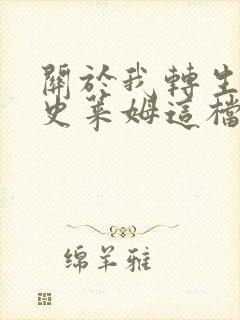 關於我轉生
史萊姆這檔
綿羊雅